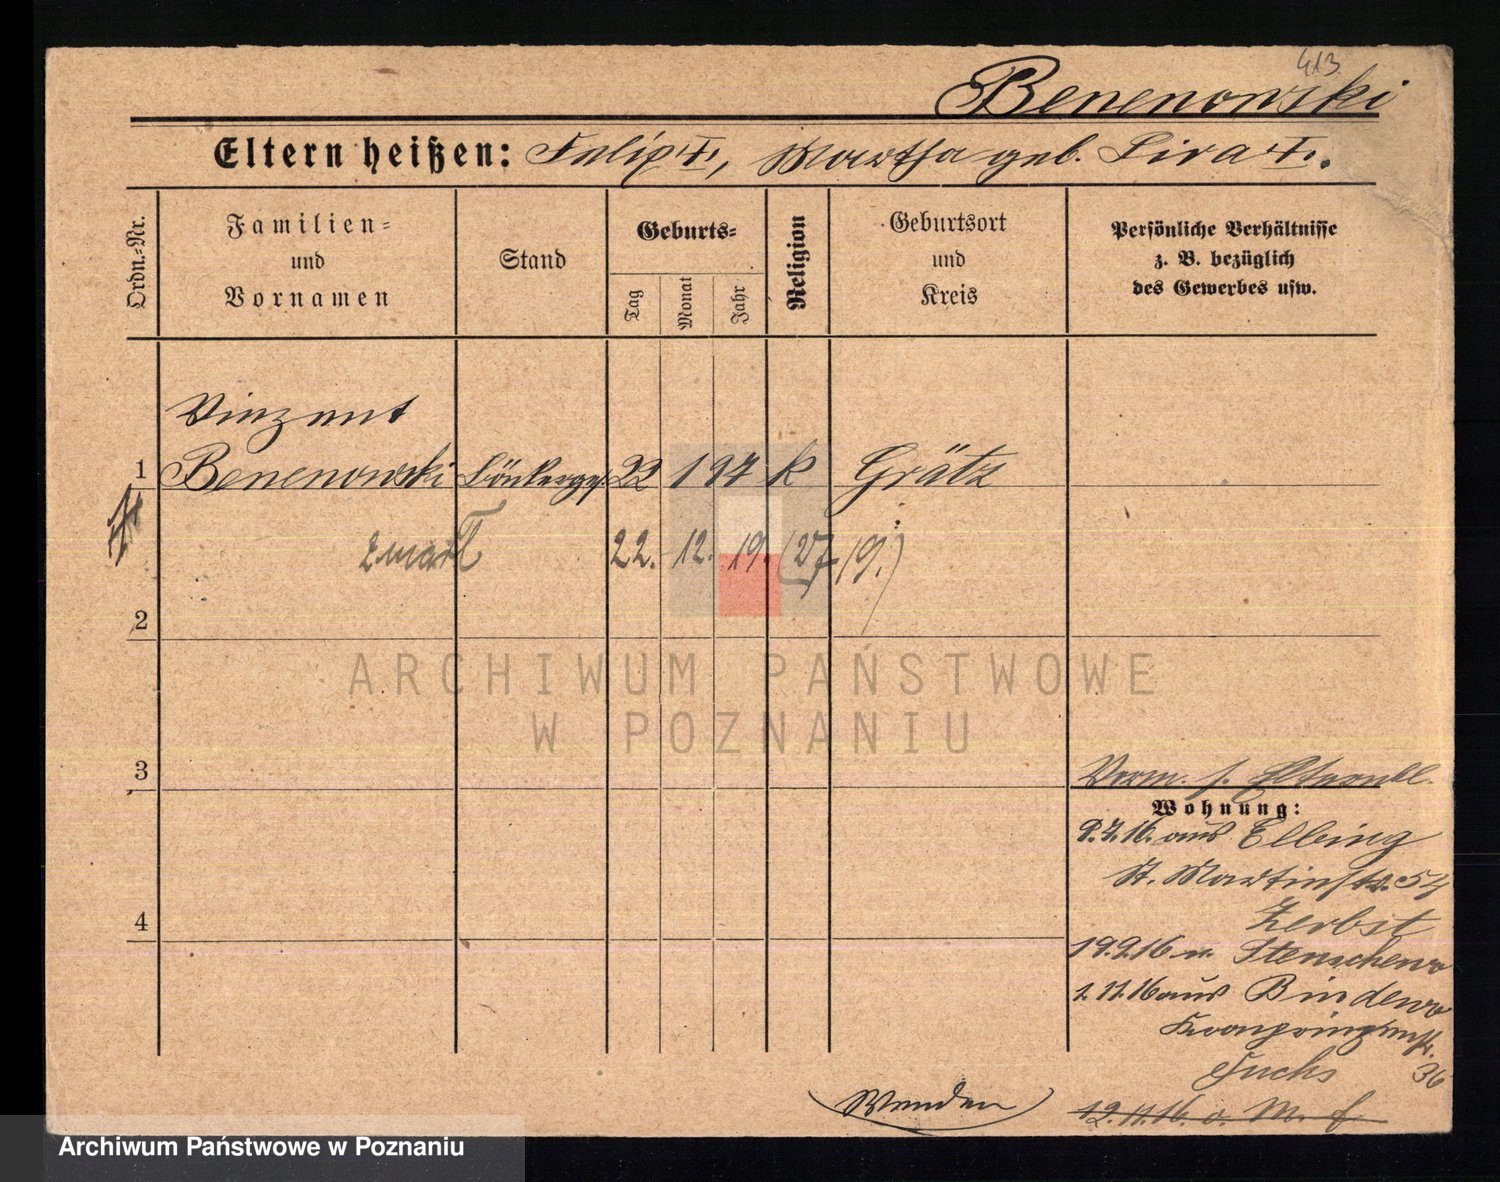 413
Benenowski
Eltern heißen: Felix †, Martha geb. Lira †.
Ordn.-Nr.
Familien-
und
Vornamen
Stand
Geburts-
Tag
Monat
Jahr
Religion
Geburtsort
und
Kreis
Persönliche Verhältnisse
z. B. bezüglich
des Gewerbes usw.
Vinzent
1 Benenowski 22 1 97 k Grätz
22. 12. 19.
2
ARCHIWUM PAŃSTWOWE
W POZNANIU
3
Verm. s.
Wohnung:
9.7.16. aus Elbing
St. Martinstr. 54
Zerbst
4
19.9.16 n. Stenschewo
1.11.16 aus Bindewo
Kronprinzenstr.
36
Fuchs
Wenden
12.11.16. o. M. f.
Archiwum Państwowe w Poznaniu